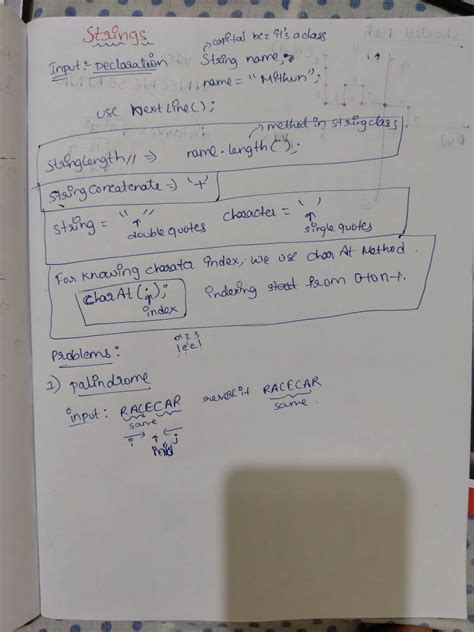 Strings
capital bcz it's a class
Input:- Declaration String name;
name = "Mithun";
use NextLine();
method in string class
string length // => name.length();
string concatenate => '+'
string = " " character = ' '
double quotes single quotes
For knowing charater index, we use char At Method.
char At (i); indexing start from 0 to n-1.
index
0 1 2 3
Problems:
1) palindrome
input: RACECAR reverse it RACECAR
same same
i j
mid